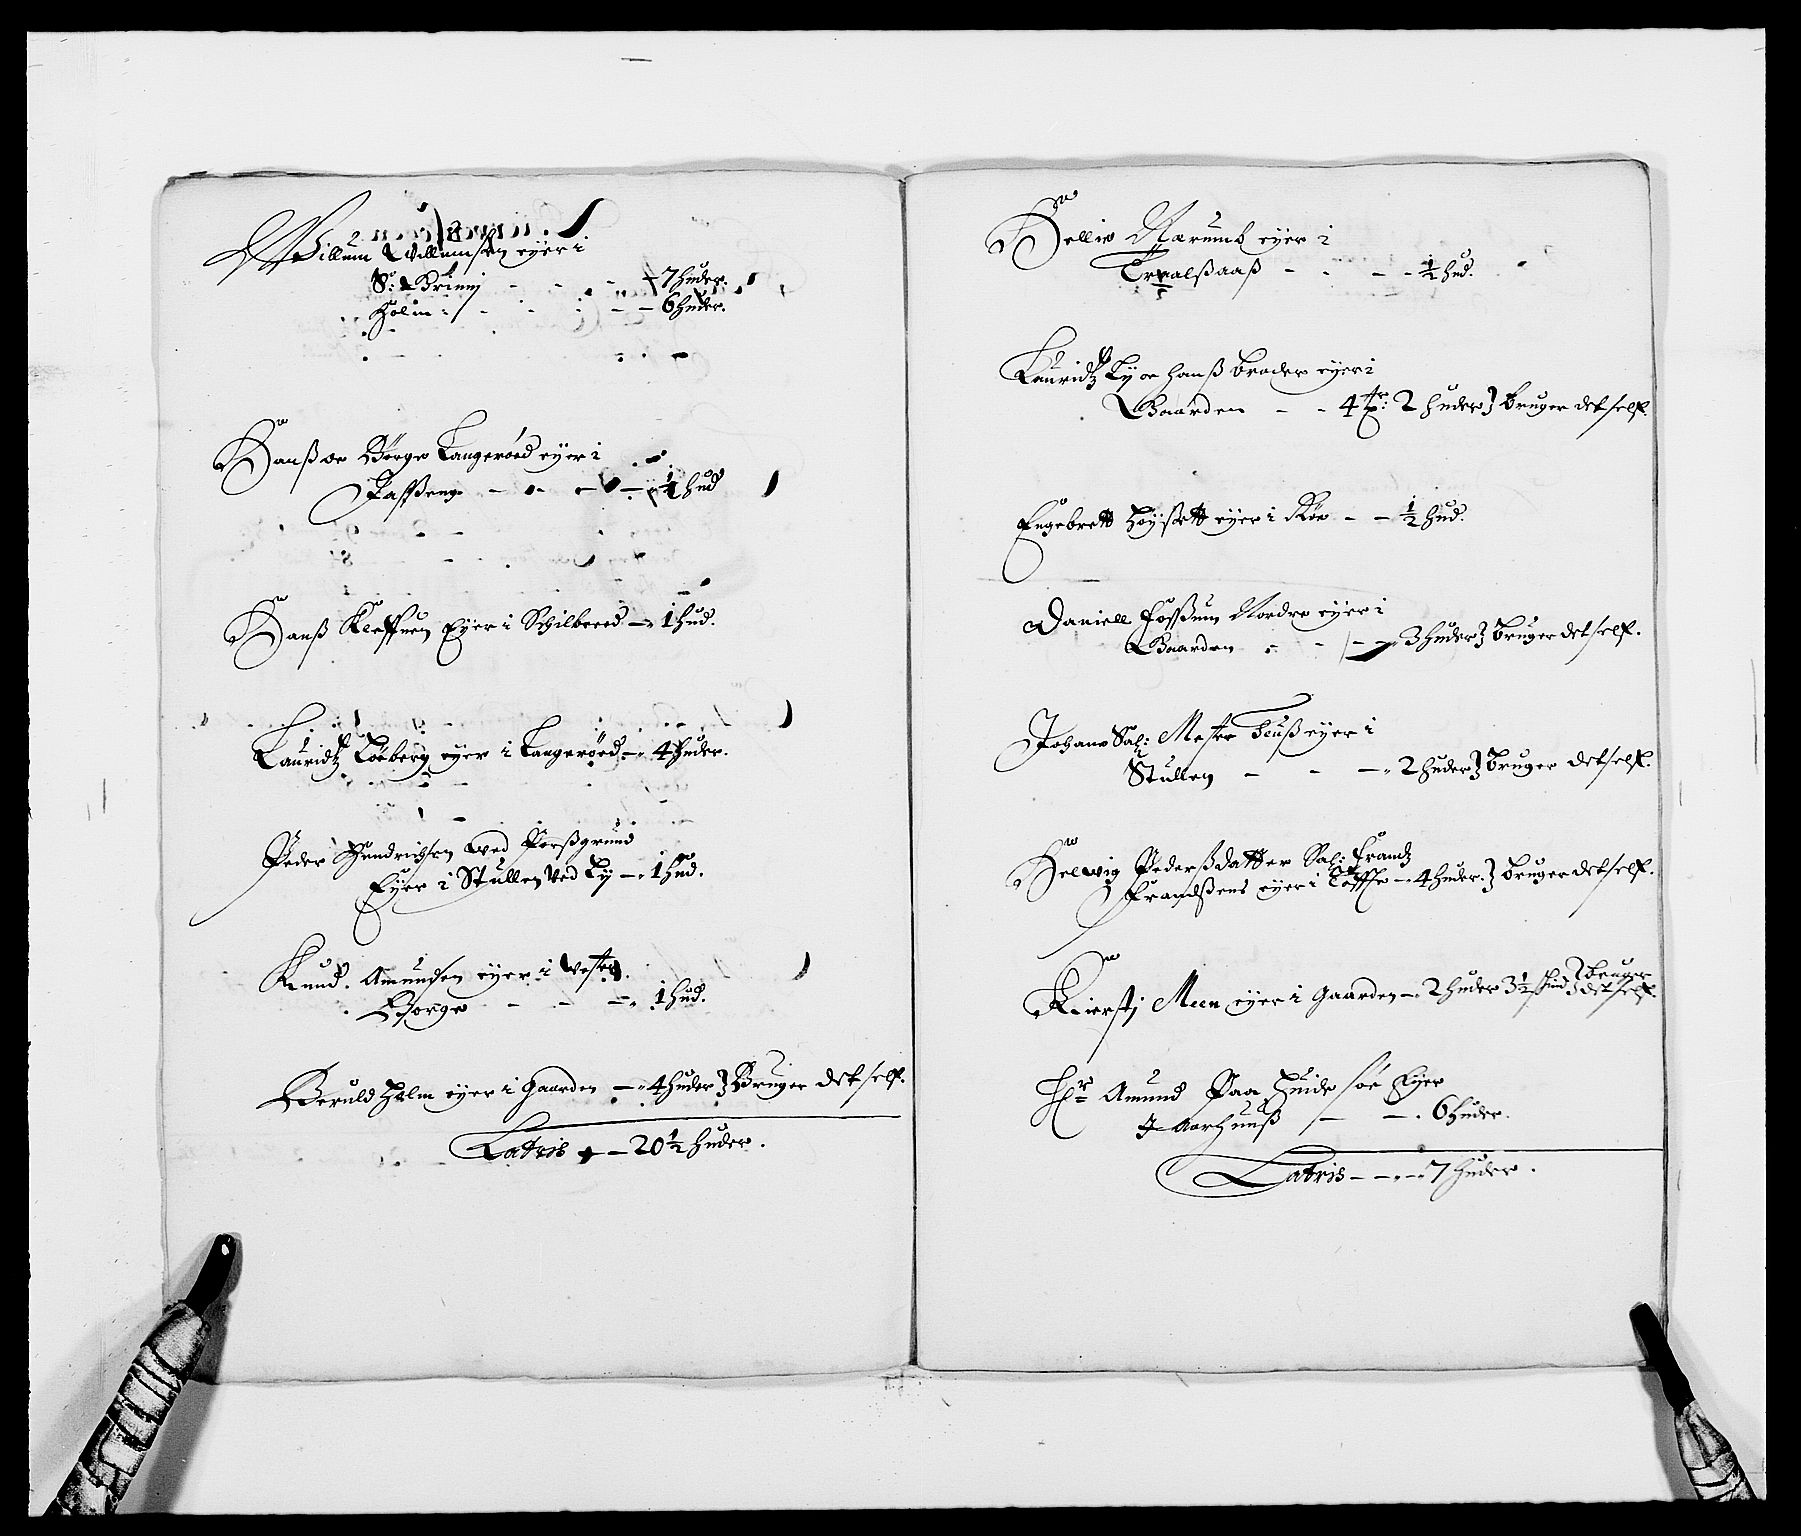 Willum Willumsen eyer i
S: Brinnj - - - 7 huder.
Holm - - - 6 huder.
Hanß oc Børge Langerøed eyer i
Faßeng - - - ½ hud
Hanß Kleffuen Eyer i Schilbered - 1 hud.
Lauridtz Løeberg eyer i Langerøed - 4 huder.
Peder Hendrichsen ved Porßgrund
Eyer i Stullen ved Ly - 1 hud.
Knud Amundsen eyer i Vestre
Borge - - - 1 hud.
Beruld Holm eyer i Gaarden - 4 huder Bruger det self.
Latris - 20½ huder.
Hellie Narumb eyer i
- - - ½ hud.
Lauridtz Lye hanß broder eyer i
Gaarden - - 4 2 huder bruger det self.
Engebrett Høysett eyer i Røe - - ½ hud.
Daniell Foßum Nordre eyer i
Gaarden - - - 3 huder bruger det self.
Johan Sal: Mester eyer i
Stullen - - - 2 huder bruger det self.
Helwig Pederßdatter Sal: Frandtz
Frandßens eyer i - 4 huder. bruger det self.
Kierstj Meen eyer i Gaarden - 2 huder 3½ skind bruger
det self.
Hr Amund Paa Huidesøe Eyer
I Aarhuuß - - 6 huder.
Latris - - - 7 huder.